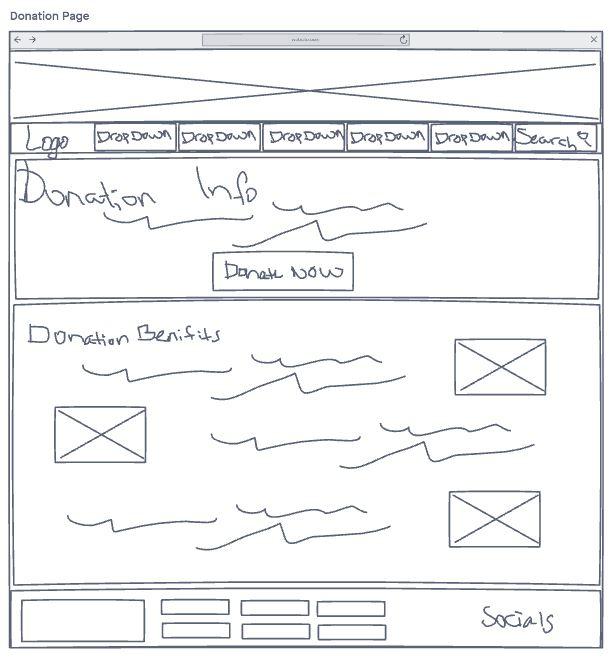 Donation Page
Logo DropDown DropDown DropDown DropDown DropDown Search
Donation Info
Donate NOW
Donation Benifits
Socials